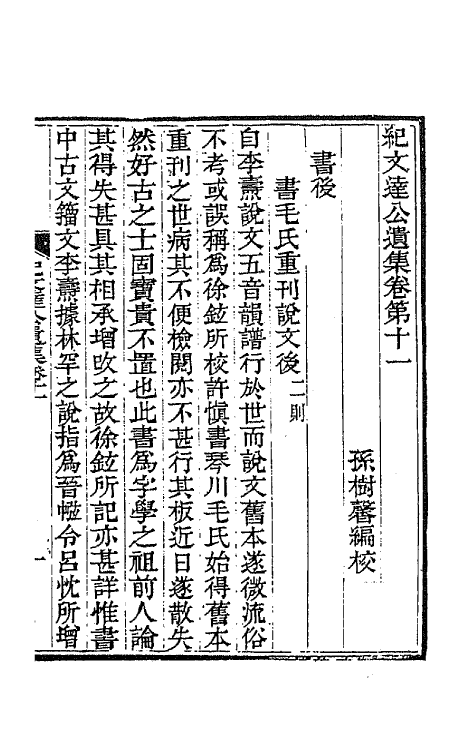 紀文達公遺集卷第十一
孫樹馨編校
書後
書毛氏重刊說文後二則
自李燾說文五音韻譜行於世而說文舊本遂微流俗
不考或誤稱爲徐鉉所校許愼書琴川毛氏始得舊本
重刊之世病其不便檢閱亦不甚行其板近日遂散失
然好古之士固寶貴不置也此書爲字學之祖前人論
其得失甚具其相承增改之故徐鉉所記亦甚詳惟書
中古文籀文李燾據林罕之說指爲晉㡉令呂忱所增
紀文達公遺集卷十一
一